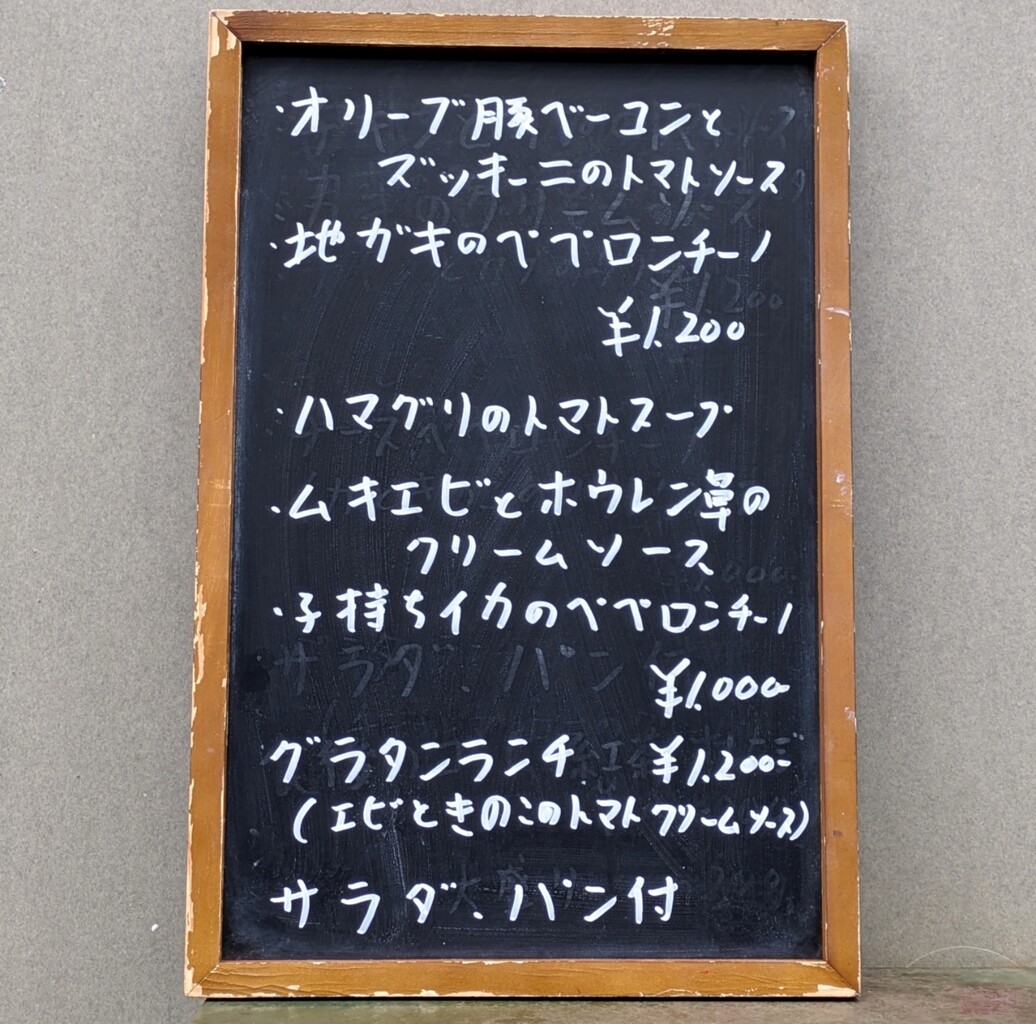 ・オリーブ豚ベーコンと
ズッキーニのトマトソース
・地ガキのペペロンチーノ
¥1,200
・ハマグリのトマトスープ
・ムキエビとホウレン草の
クリームソース
・子持ちイカのペペロンチーノ
¥1,000-
グラタンランチ ¥1,200-
(エビときのこのトマトクリームソース)
サラダ、パン付